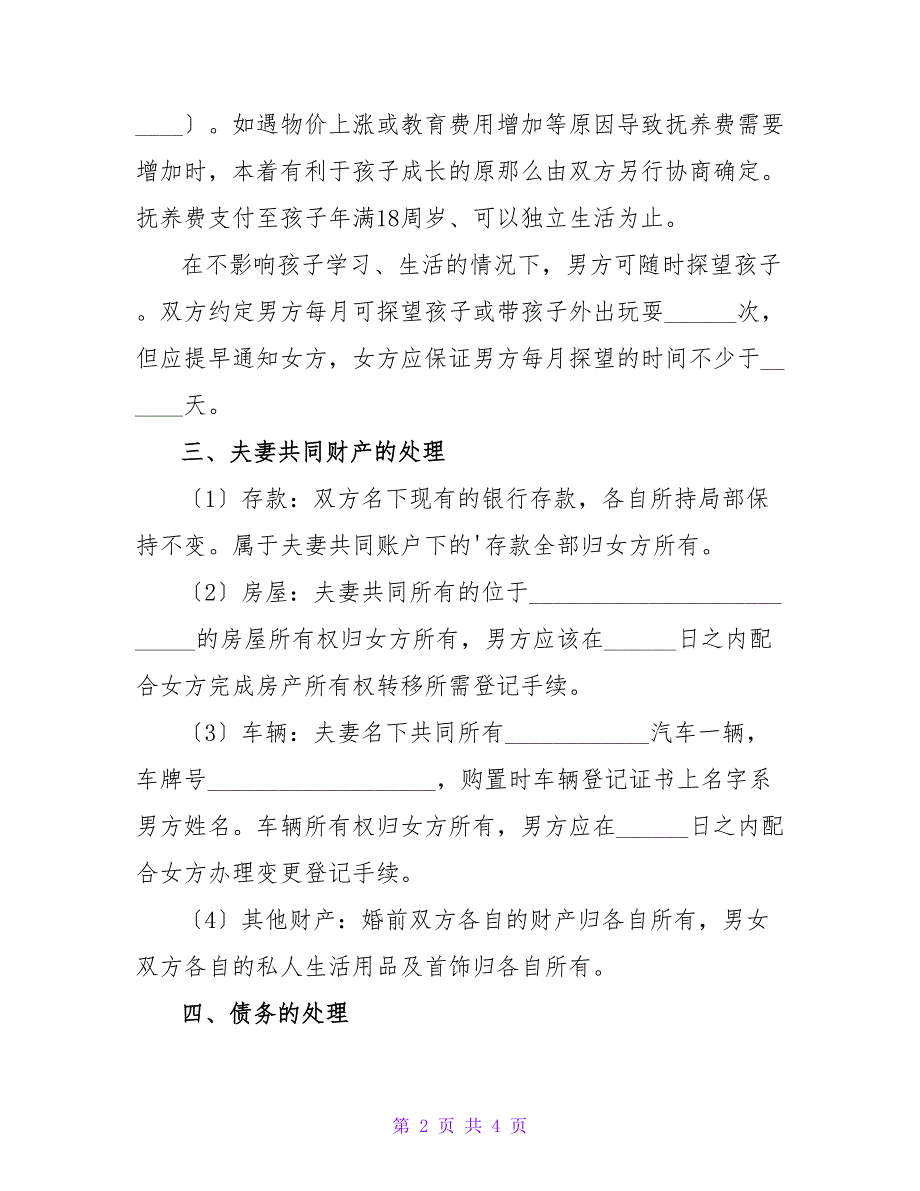 ____〕。如遇物价上涨或教育费用增加等原因导致抚养费需要
增加时，本着有利于孩子成长的原那么由双方另行协商确定。
抚养费支付至孩子年满18周岁、可以独立生活为止。
在不影响孩子学习、生活的情况下，男方可随时探望孩子
。双方约定男方每月可探望孩子或带孩子外出玩耍______次，
但应提早通知女方，女方应保证男方每月探望的时间不少于__
____天。
三、夫妻共同财产的处理
〔1〕存款：双方名下现有的银行存款，各自所持局部保
持不变。属于夫妻共同账户下的'存款全部归女方所有。
〔2〕房屋：夫妻共同所有的位于_____________________
_____的房屋所有权归女方所有，男方应该在______日之内配
合女方完成房产所有权转移所需登记手续。
〔3〕车辆：夫妻名下共同所有____________汽车一辆，
车牌号___________________，购置时车辆登记证书上名字系
男方姓名。车辆所有权归女方所有，男方应在______日之内配
合女方办理变更登记手续。
〔4〕其他财产：婚前双方各自的财产归各自所有，男女
双方各自的私人生活用品及首饰归各自所有。
四、债务的处理
第 2 页 共 4 页